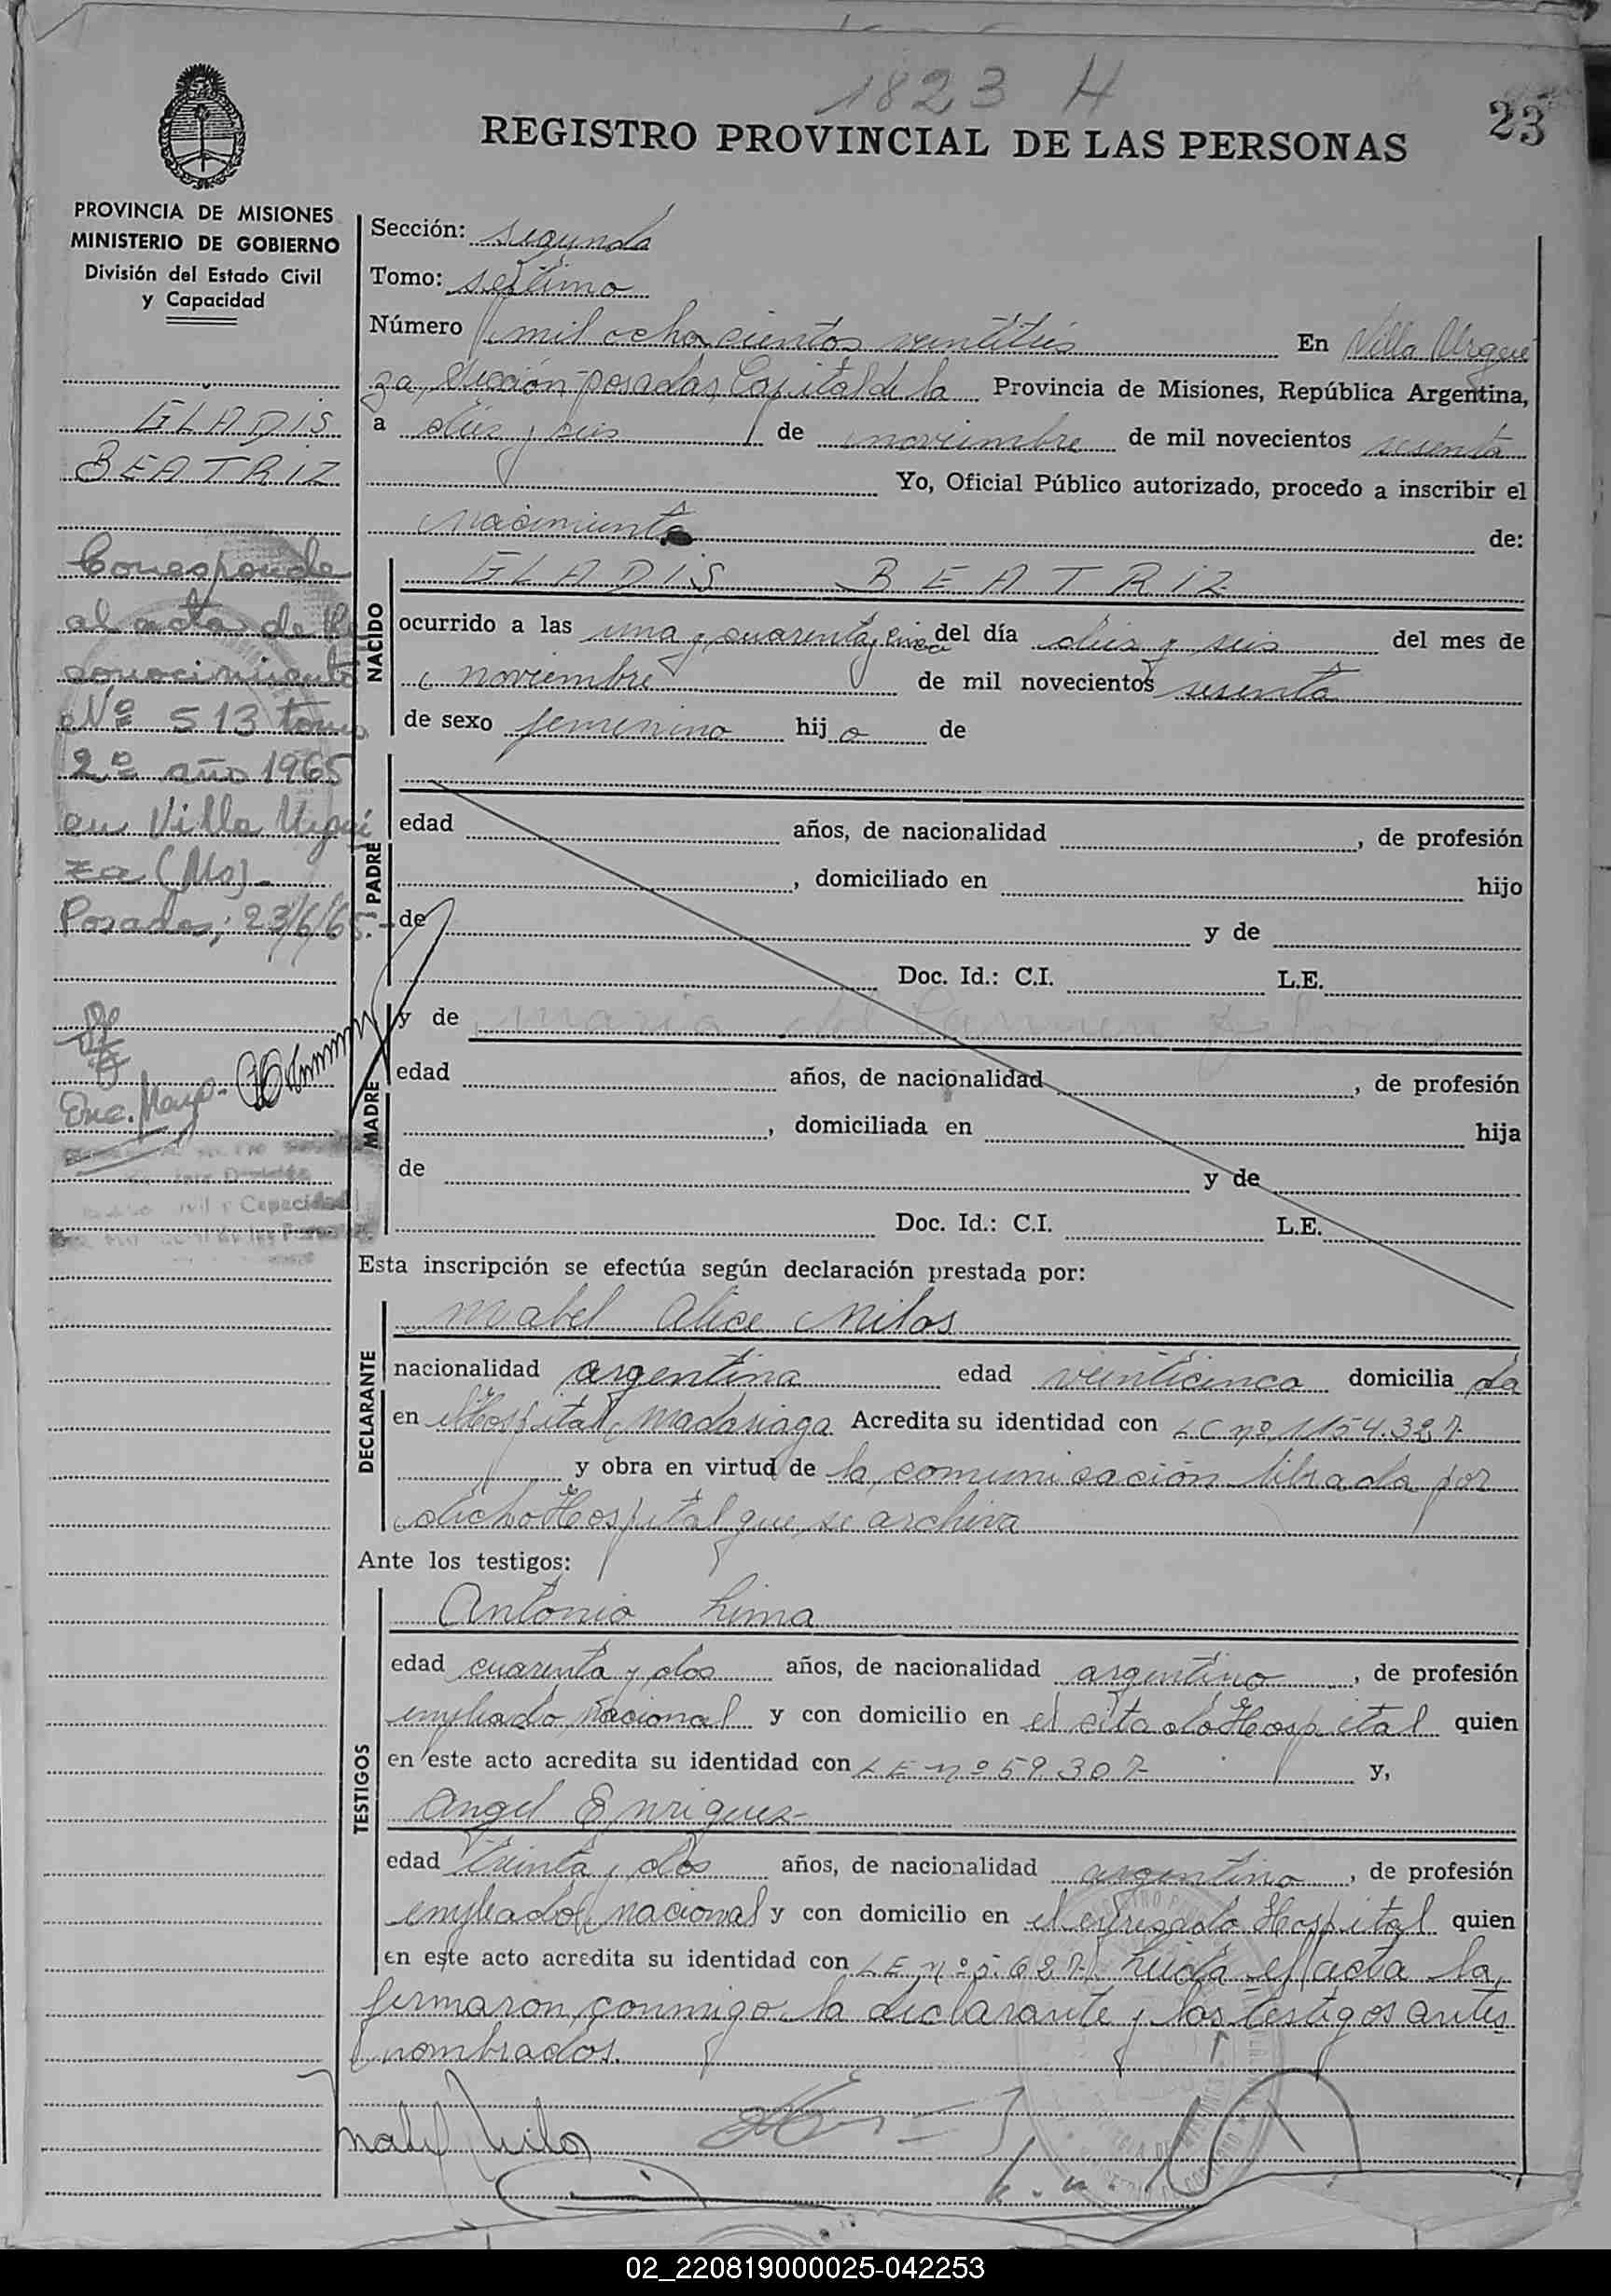 1823 H
23
REGISTRO PROVINCIAL DE LAS PERSONAS
PROVINCIA DE MISIONES
MINISTERIO DE GOBIERNO
División del Estado Civil
y Capacidad
GLADIS
BEATRIZ
Corresponde
al acta de Re
conocimiento
Nº 513 tomo
2º año 1965
en Villa Urqui
za (Ms).-
Posadas; 23/6/65.-
Enc. Mayo.
Sección: segunda
Tomo: séptimo
Número mil ochocientos veintitrés En Villa Urqui
za, Sección, posadas, Capital de la Provincia de Misiones, República Argentina,
a diez y seis de noviembre de mil novecientos sesenta
Yo, Oficial Público autorizado, procedo a inscribir el
nacimiento de:
NACIDO
GLADIS BEATRIZ
ocurrido a las una y cuarenta y cinco del día diez y seis del mes de
noviembre de mil novecientos sesenta
de sexo femenino hij a de
PADRE
edad años, de nacionalidad , de profesión
, domiciliado en hijo
de y de
Doc. Id.: C.I. L.E.
MADRE
y de maria del Carmen
edad años, de nacionalidad , de profesión
, domiciliada en hija
de y de
Doc. Id.: C.I. L.E.
Esta inscripción se efectúa según declaración prestada por:
DECLARANTE
Mabel Alice Milos
nacionalidad argentina edad veinticinco domicilia da
en el Hospital Madariaga Acredita su identidad con LC nº 1154.327-
y obra en virtud de la comunicación librada por
dicho Hospital que se archiva
Ante los testigos:
TESTIGOS
Antonio Lima
edad cuarenta y dos años, de nacionalidad argentino , de profesión
empleado nacional y con domicilio en el citado Hospital quien
en este acto acredita su identidad con LE nº 59307- y,
Angel Enriquez-
edad treinta y dos años, de nacionalidad argentino , de profesión
empleado nacional y con domicilio en el expresado Hospital quien
en este acto acredita su identidad con LE nº Leida el acta la
firmaron conmigo la declarante y los testigos antes
nombrados.
Mabel Milos
02_220819000025-042253